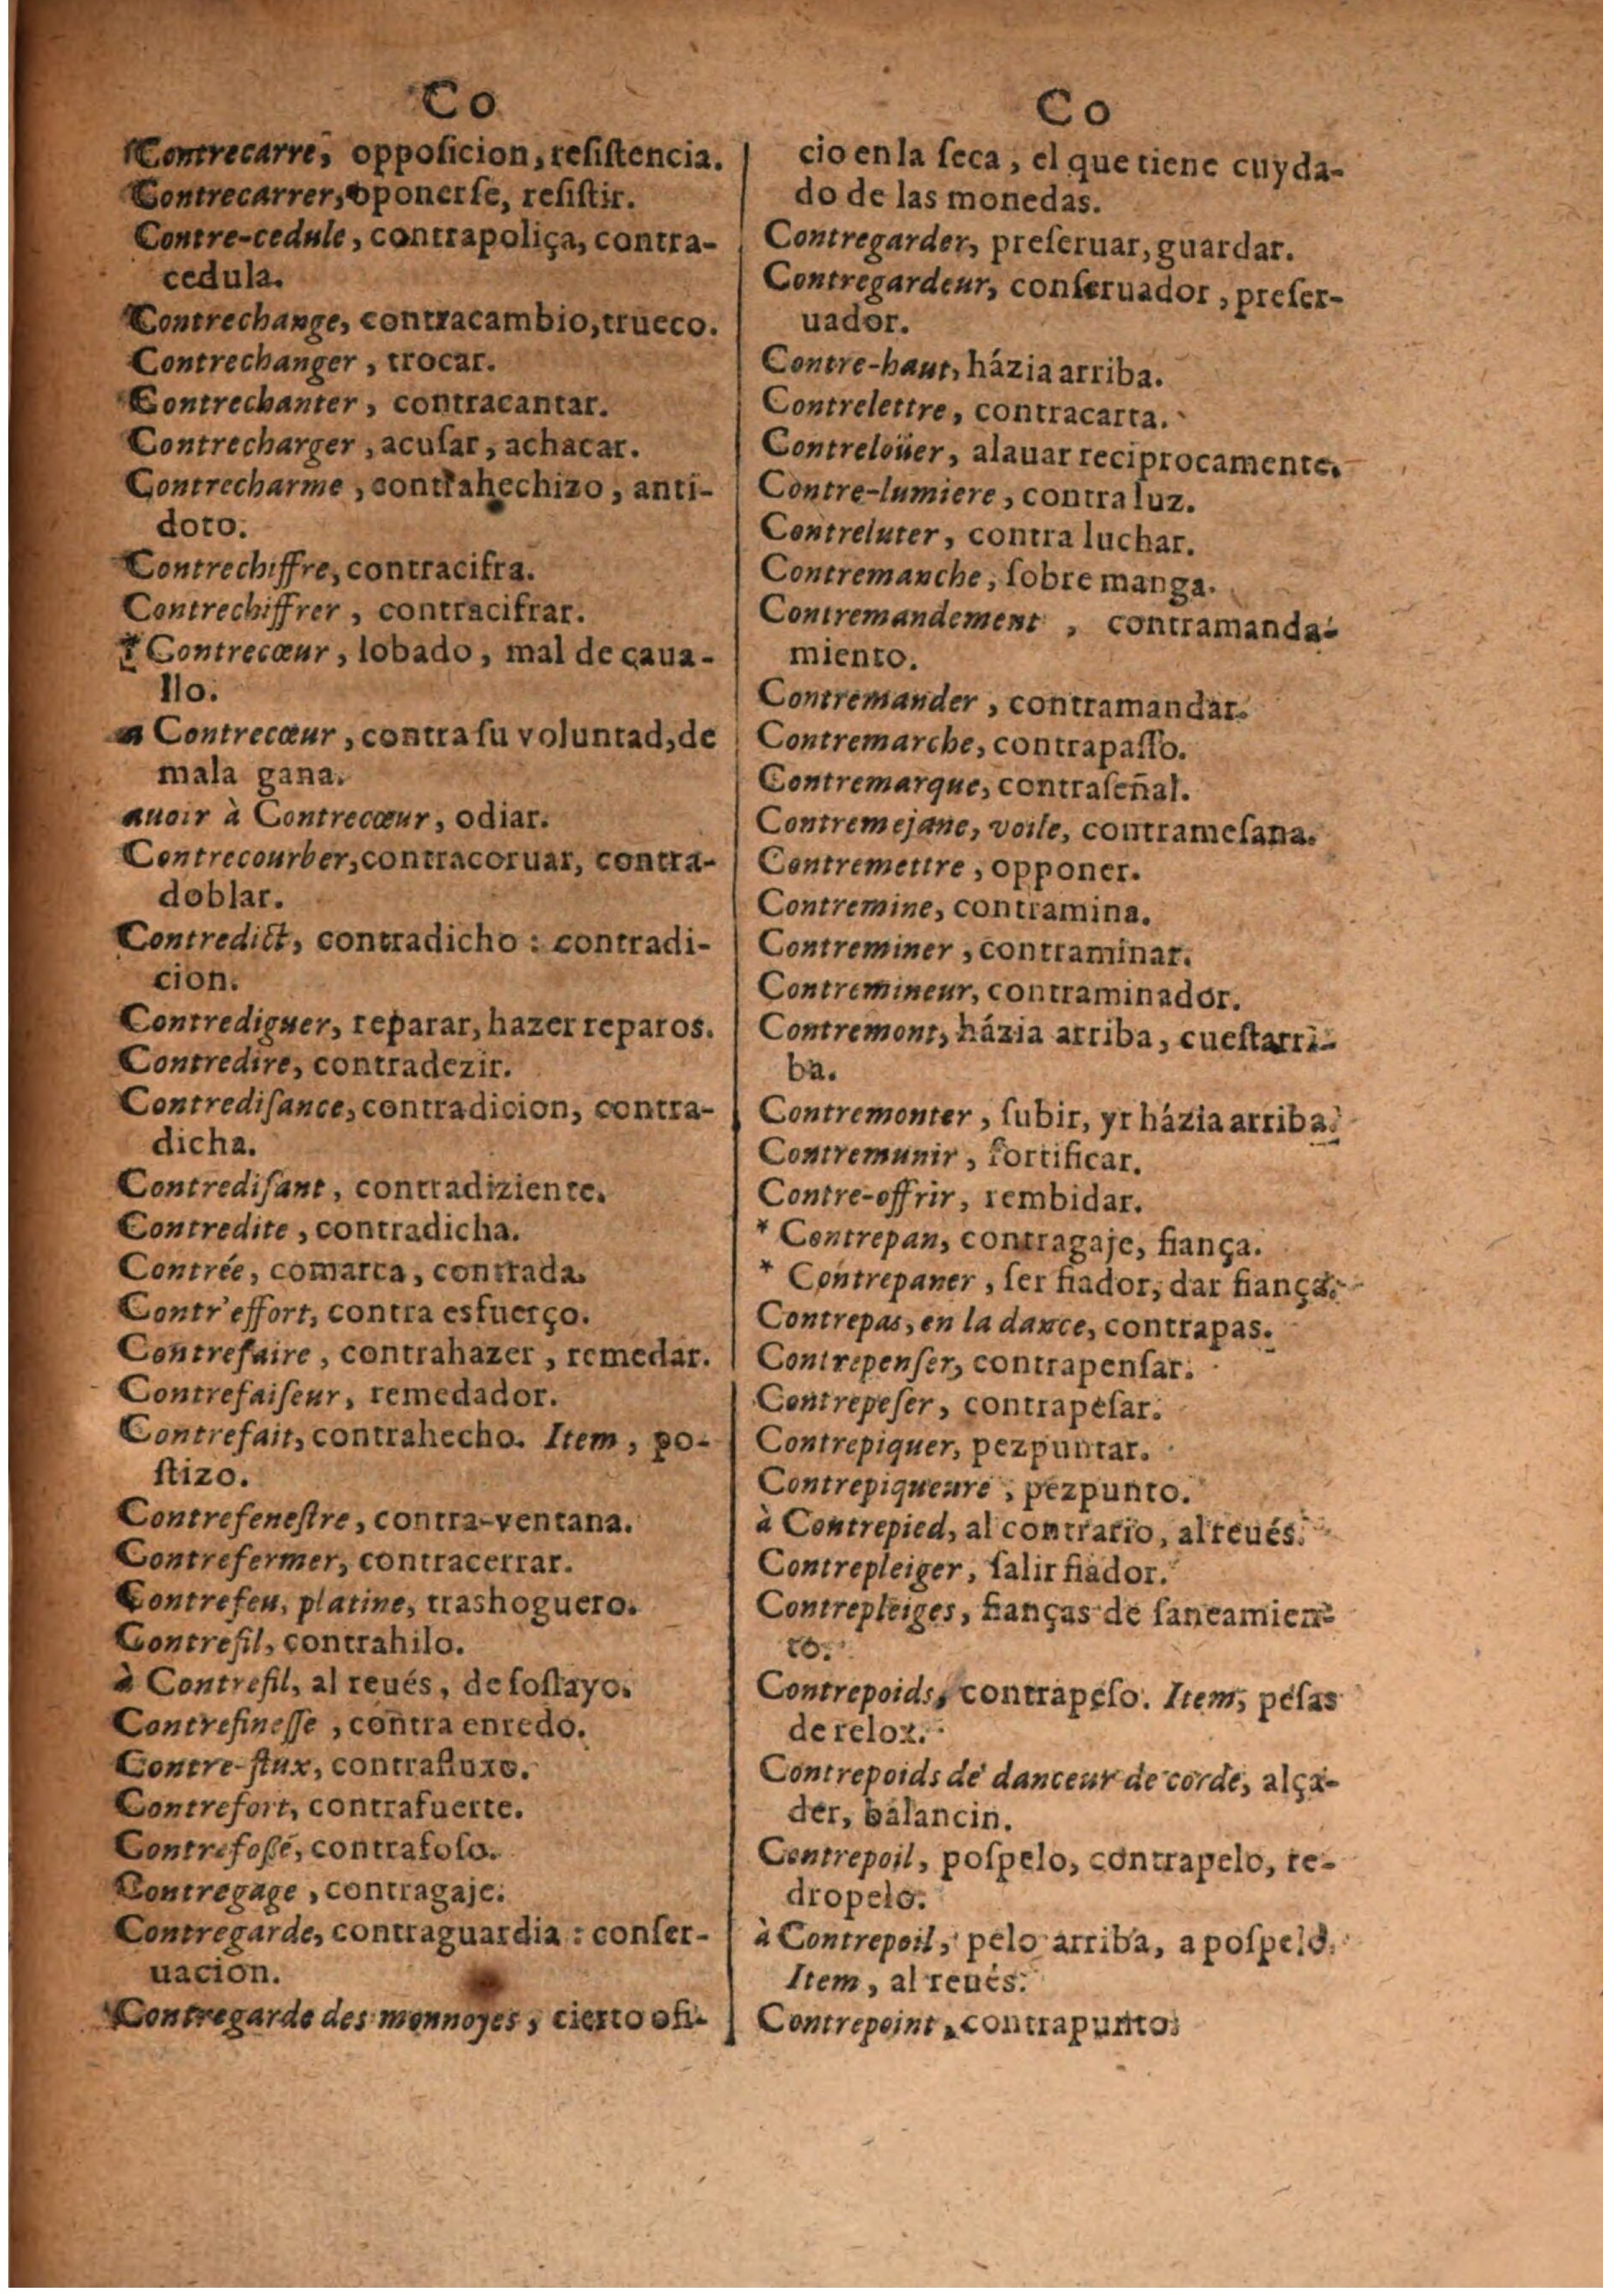 Co
Contrecarre, opposicion, resistencia.
Contrecarrer, oponerſe, reſiſtir.
Contre-cedule, contrapoliça, contra-
cedula.
Contrechange, contracambio, trueco.
Contrechanger, trocar.
Contrechanter, contracantar.
Contrecharger, acuſar, achacar.
Contrecharme, contrahechizo, anti-
doto.
Contrechiffre, contracifra.
Contrechiffrer, contracifrar.
Contrecœur, lobado, mal de caua-
llo.
a Contrecœur, contra ſu voluntad, de
mala gana.
auoir à Contrecœur, odiar.
Contrecourber, contracoruar, contra-
doblar.
Contredict, contradicho : contradi-
cion.
Contrediguer, reparar, hazer reparos.
Contredire, contradezir.
Contrediſance, contradicion, contra-
dicha.
Contrediſant, contradiziente.
Contredite, contradicha.
Contrée, comarca, contrada.
Contr'effort, contra esfuerço.
Contrefaire, contrahazer, remedar.
Contrefaiſeur, remedador.
Contrefait, contrahecho. Item, po-
ſtizo.
Contrefeneſtre, contra-ventana.
Contrefermer, contracerrar.
Contrefeu, platine, trashoguero.
Contrefil, contrahilo.
à Contrefil, al reués, de ſoſlayo.
Contrefineſſe, contra enredo.
Contre-flux, contrafluxo.
Contrefort, contrafuerte.
Contrefoſſé, contrafoſo.
Contregage, contragaje.
Contregarde, contraguardia : conſer-
uacion.
Contregarde des monnoyes, cierto ofi-
Co
cio en la ſeca, el que tiene cuyda-
do de las monedas.
Contregarder, preſeruar, guardar.
Contregardeur, conſeruador, preſer-
uador.
Contre-haut, házia arriba.
Contrelettre, contracarta.
Contreloüer, alauar reciprocamente.
Contre-lumiere, contra luz.
Contreluter, contra luchar.
Contremanche, ſobre manga.
Contremandement, contramanda-
miento.
Contremander, contramandar.
Contremarche, contrapaſſo.
Contremarque, contraſeñal.
Contremejane, voile, contrameſana.
Contremettre, opponer.
Contremine, contramina.
Contreminer, contraminar.
Contremineur, contraminador.
Contremont, házia arriba, cueſtarri-
ba.
Contremonter, ſubir, yr házia arriba.
Contremunir, fortificar.
Contre-offrir, rembidar.
* Contrepan, contragaje, fiança.
* Contrepaner, ſer fiador, dar fiança.
Contrepas, en la dance, contrapas.
Contrepenſer, contrapenſar.
Contrepeſer, contrapeſar.
Contrepiquer, pezpuntar.
Contrepiqueure, pezpunto.
à Contrepied, al contrario, al reués.
Contrepleiger, ſalir fiador.
Contrepleiges, fianças de ſaneamien-
to.
Contrepoids, contrapeſo. Item, peſas
de relox.
Contrepoids de danceur de corde, alça-
der, balancin.
Contrepoil, poſpelo, contrapelo, re-
dropelo.
à Contrepoil, pelo arriba, a poſpelo.
Item, al reués.
Contrepoint, contrapunto.